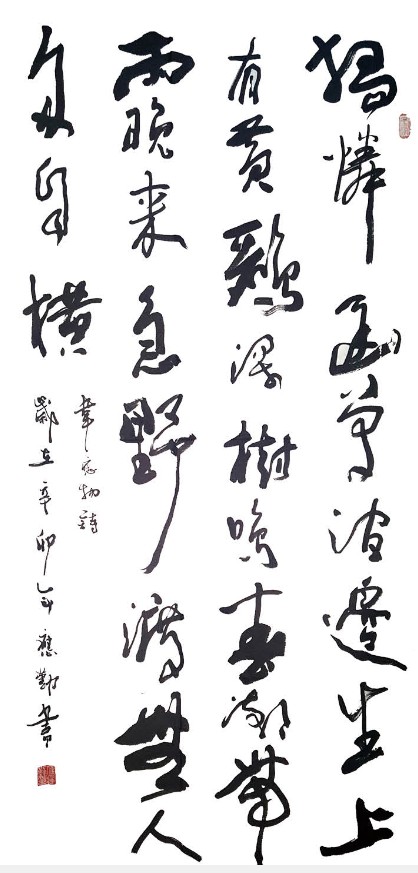 獨憐幽草澗邊生上
有黃鸝深樹鳴春潮帶
雨晚来急野渡無人
舟自橫
韋應物詩
歲在辛卯年應勤書